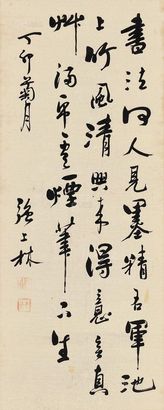 書法何人見墨精右軍池
上竹風清興來得意真
艸滿帋雲煙筆下生
丁卯菊月
強上林